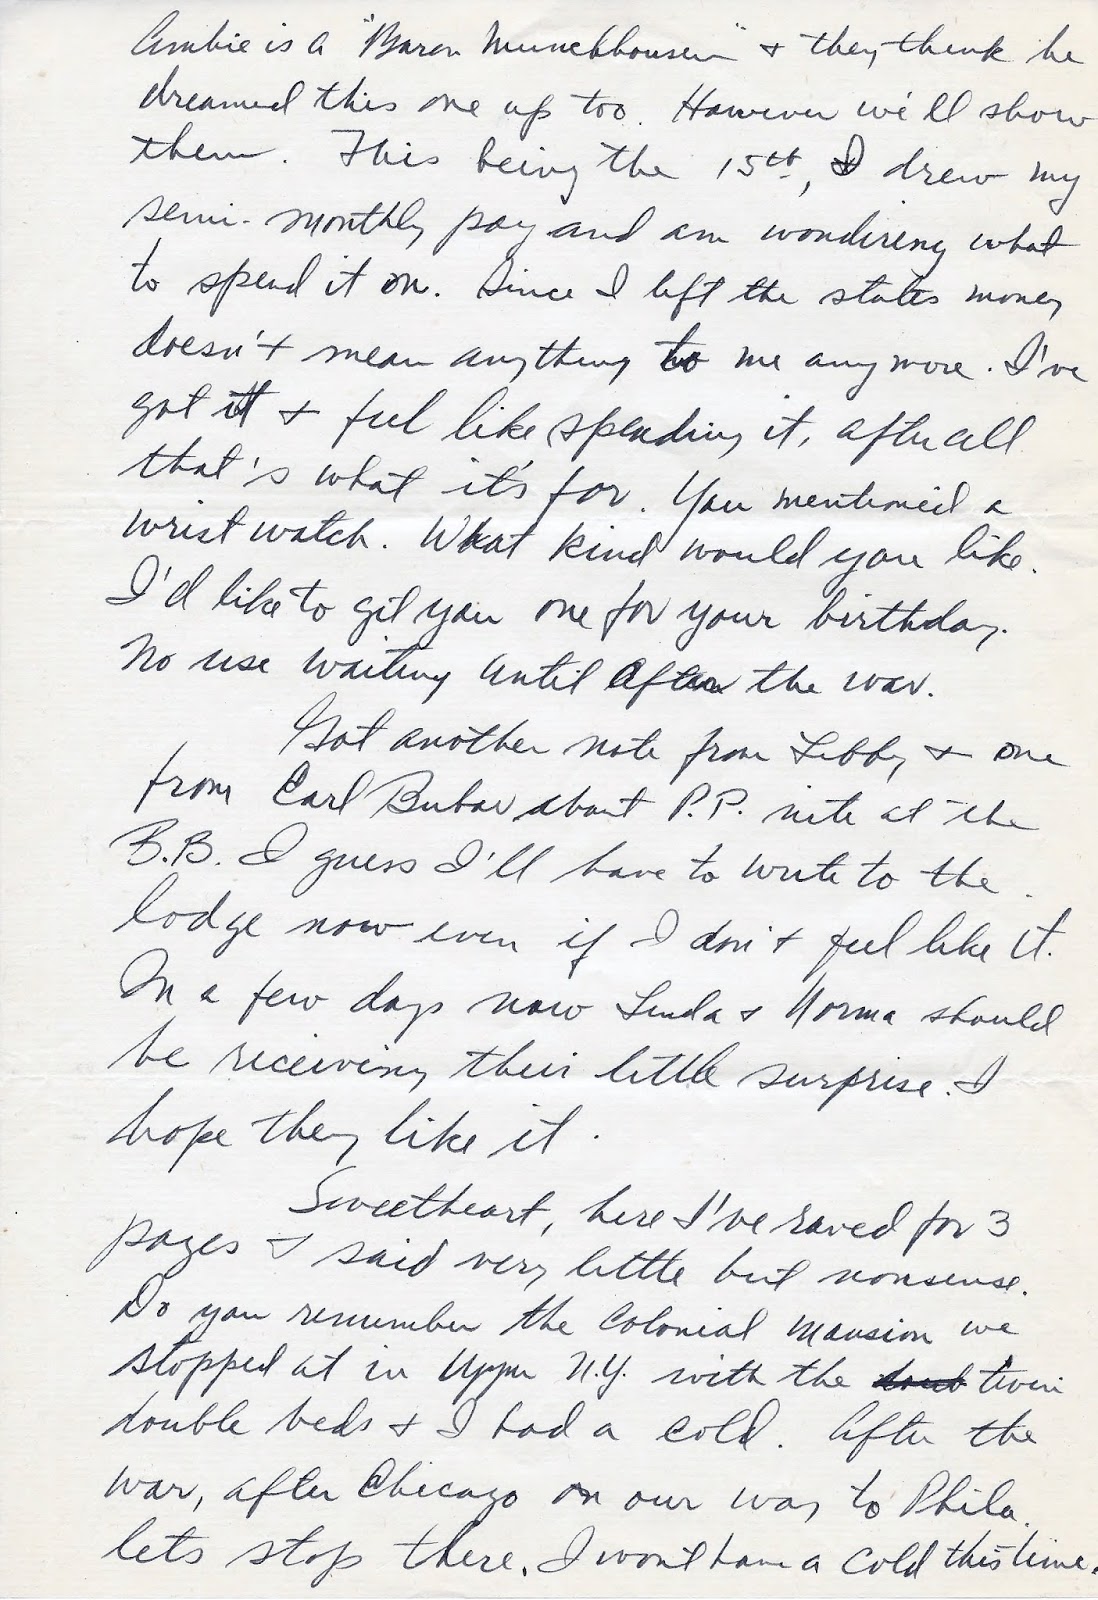 Ambie is a "Baron Munchhousen" & they think he
dreamed this one up too. However we'll show
them. This being the 15th, I drew my
semi-monthly pay and am wondering what
to spend it on. Since I left the states money
doesn't mean anything to me anymore. I've
got it & feel like spending it, after all
that's what it's for. You mentioned a
wrist watch. What kind would you like.
I'd like to get you one for your birthday.
No use waiting until after the war.
Got another note from Libby & one
from Carl Bubar about P.P. nite at the
B.B. I guess I'll have to write to the
lodge now even if I don't feel like it.
In a few days now Linda & Norma should
be receiving their little surprise. I
hope they like it.
Sweetheart, here I've raved for 3
pages & said very little but nonsense.
Do you remember the Colonial Mansion we
stopped at in Upper N.Y. with the twin
double beds & I had a cold. After the
war, after Chicago on our way to Phila.
lets stop there. I wont have a cold this time.